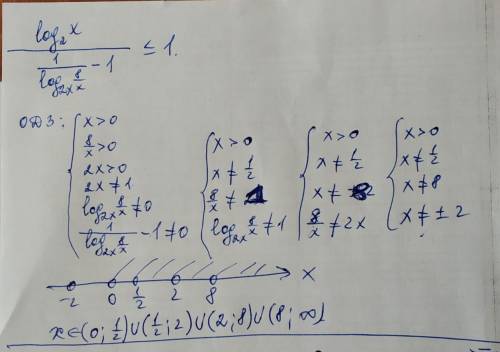 log₂x / (1/(log₂ₓ 8/x) - 1) ≤ 1.
ОДЗ: { x>0
8/x>0
2x>0
2x≠1
log₂ₓ 8/x ≠0
1/(log₂ₓ 8/x) - 1≠0
{ x>0
x≠1/2
8/x≠1
log₂ₓ 8/x ≠1
{ x>0
x≠1/2
x≠8
8/x≠2x
{ x>0
x≠1/2
x≠8
x≠±2
-2 0 1/2 2 8 x
x∈(0; 1/2)∪(1/2; 2)∪(2; 8)∪(8; ∞)